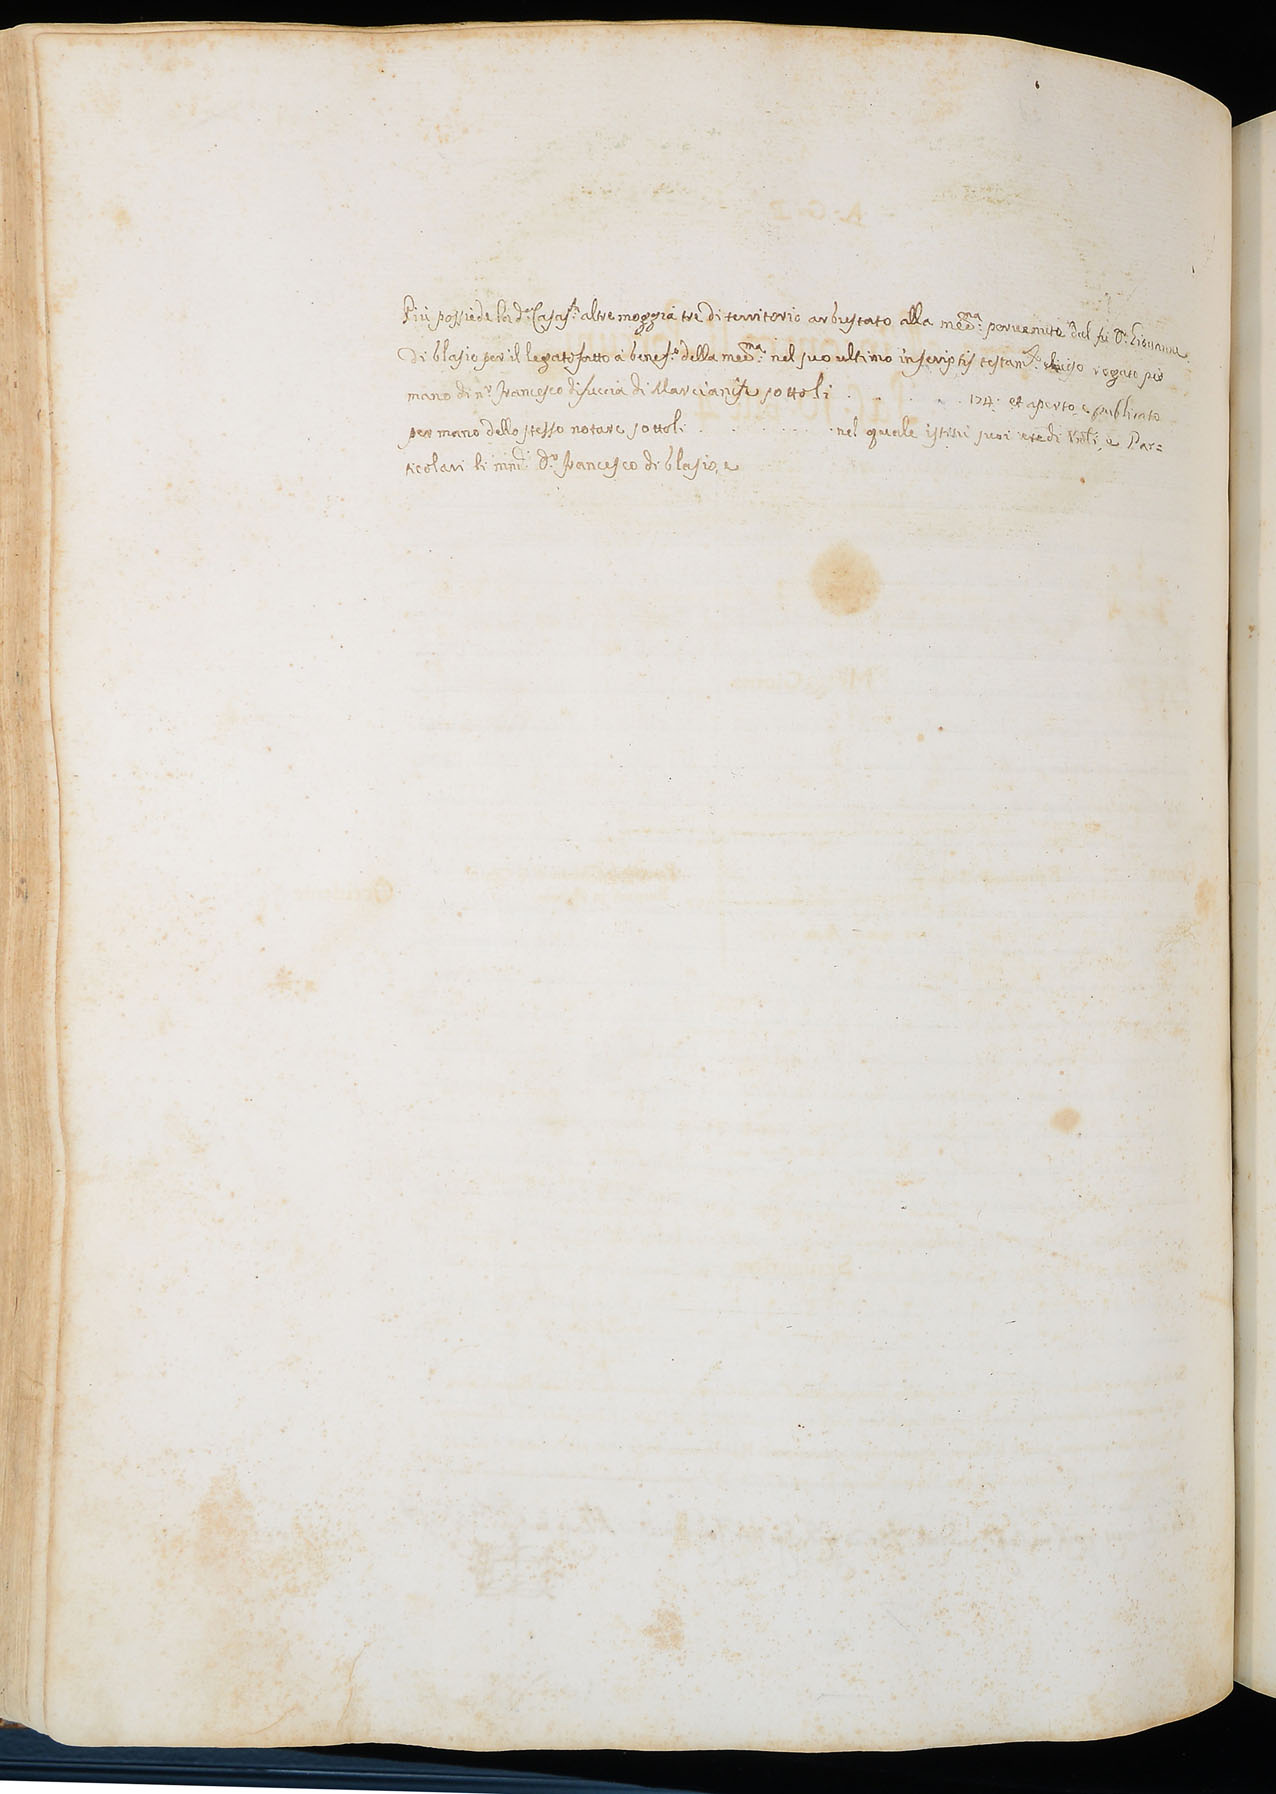 Più possiede la d.ª Casas.ª altre moggia tre di territorio arbustato alla med.ma pervenute dal fù D.r Giovanni
di blasio per il legato fatto à benef.º della med.ma nel suo ultimo inscriptis testam.to chiuso rogato per
mano di n.r Francesco di fuccia di Marcianise sottoli . . . . . . 174. et aperto, e publicato
per mano dello stesso notare sottoli . . . . . . . . nel quale istituì suoi eredi Vnĩli, e Par=
ticolari li D.r Francesco di blasio, e